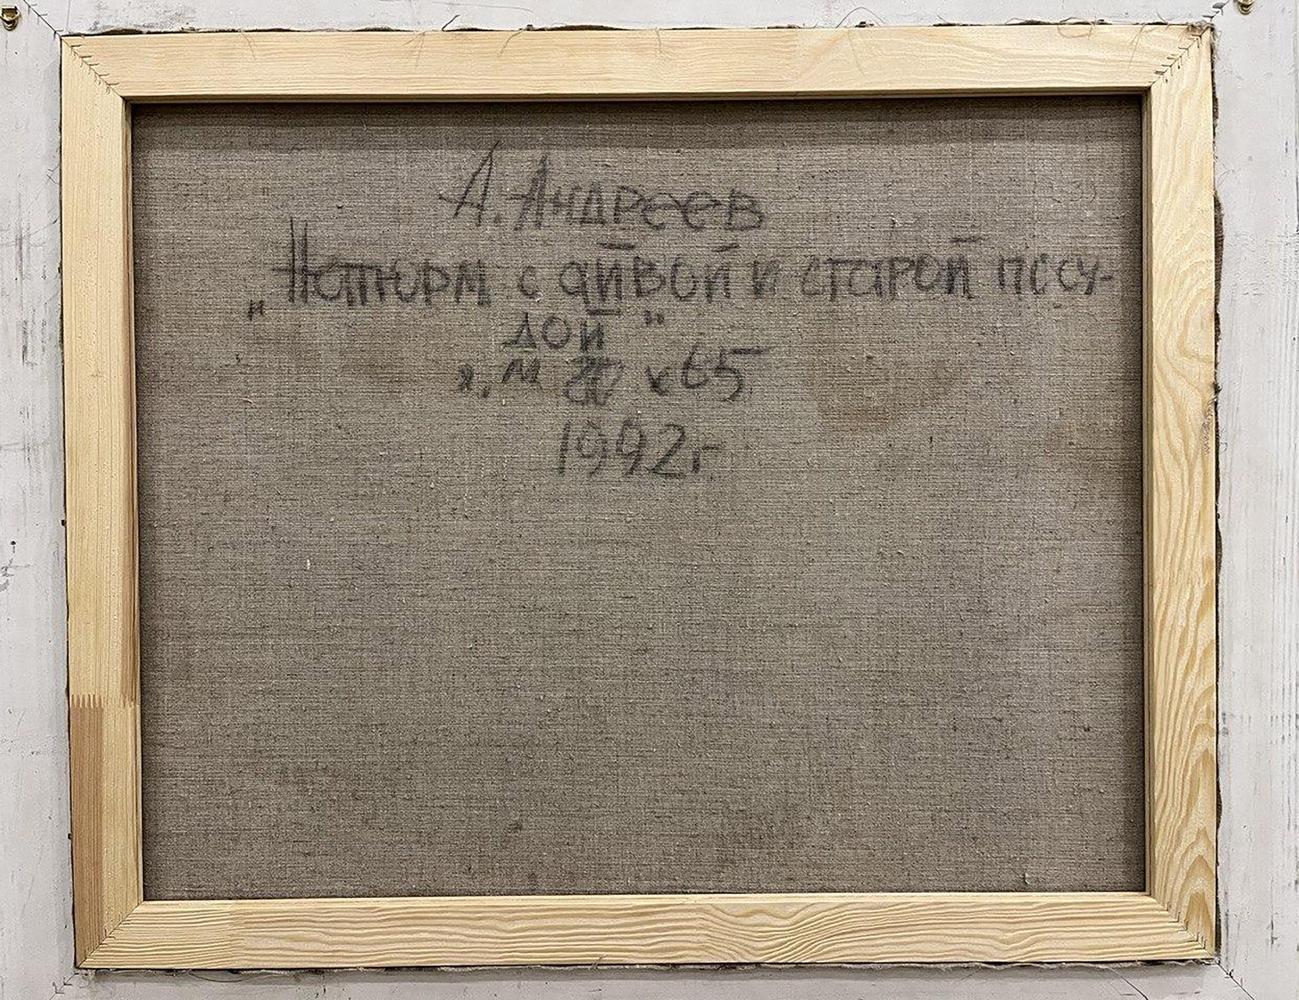 А. Андреев
„Натюрм с айвой и старой посу-
дой"
х. м 80 х 65
1992г